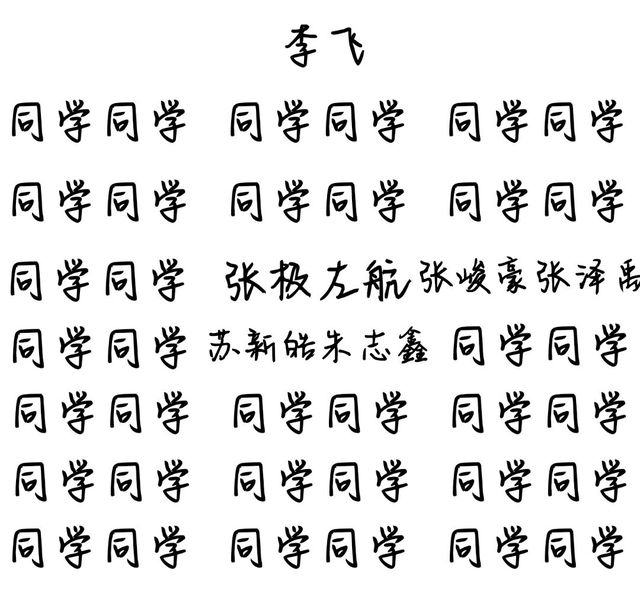 李飞
同学同学 同学同学 同学同学
同学同学 同学同学 同学同学
同学同学 张极左航 张峻豪张泽禹
同学同学 苏新皓朱志鑫 同学同学
同学同学 同学同学 同学同学
同学同学 同学同学 同学同学
同学同学 同学同学 同学同学